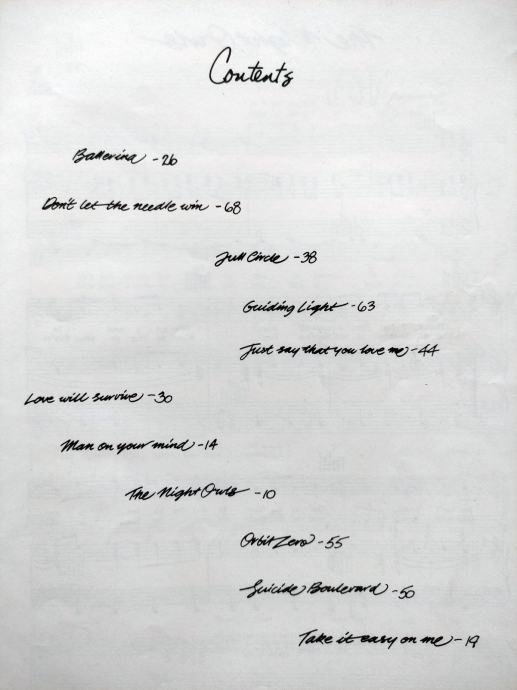 Contents
Ballerina - 26
Don't let the needle win - 68
Full Circle - 38
Guiding Light - 63
Just say that you love me - 44
Love will survive - 30
Man on your mind - 14
The Night Owls - 10
Orbit Zero - 55
Suicide Boulevard - 50
Take it easy on me - 19